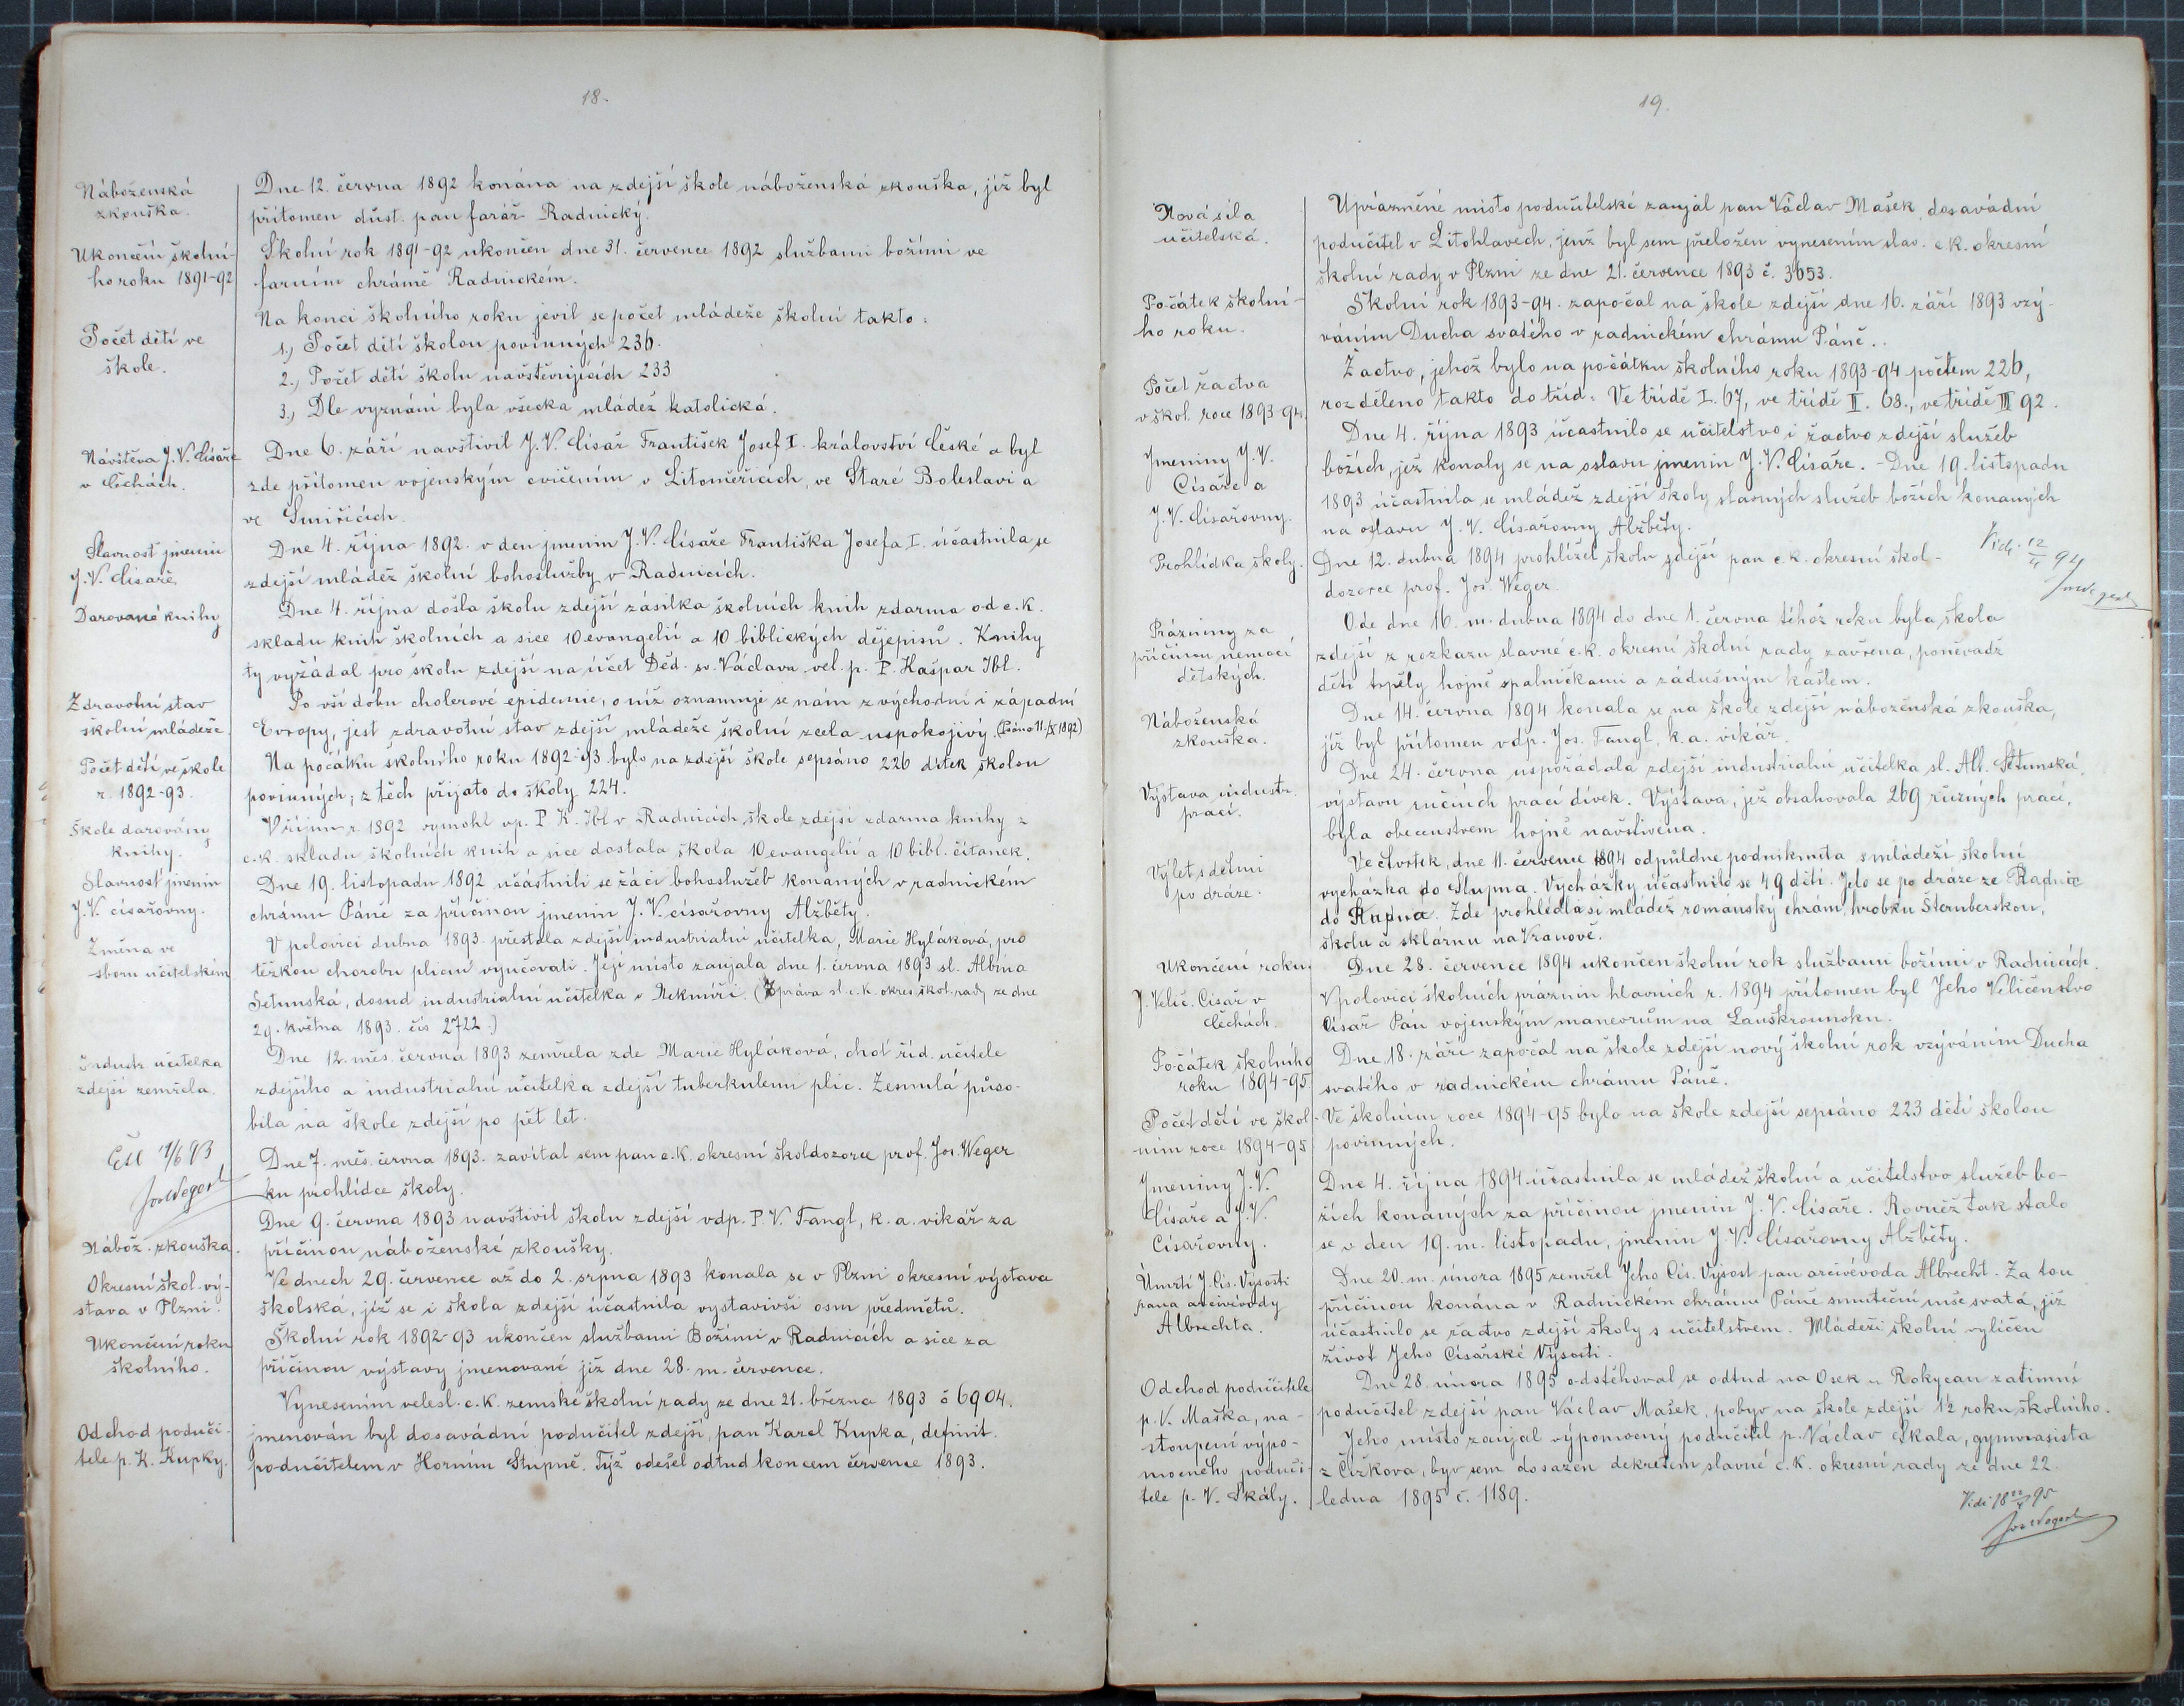 18.
Náboženská
zkouška.
Dne 12. června 1892 konána na zdejší škole náboženská zkouška, jíž byl
přítomen důst. pan farář Radnický.
Ukončení školní-
ho roku 1891-92
Školní rok 1891-92 ukončen dne 31. července 1892 službami božími ve
farním chrámě Radnickém.
Počet dětí ve
škole.
Na konci školního roku jevil se počet mládeže školní takto:
1.) Počet dětí školou povinných 236.
2.) Počet dětí školu navštěvujících 233
3.) Dle vyznání byla všecka mládež katolická.
Návštěva J. V. Císaře
v Čechách.
Dne 6. září navštívil J. V. Císař František Josef I. království České a byl
zde přítomen vojenským cvičením v Litoměřicích, ve Staré Boleslavi a
ve Smiřicích.
Slavnosť jmenin
J. V. Císaře.
Dne 4. října 1892. v den jmenin J. V. Císaře Františka Josefa I. účastnila se
zdejší mládež školní bohoslužby v Radnicích.
Darované knihy
Dne 4. října došla školu zdejší zásilka školních knih zdarma od c. k.
skladu knih školních a sice 10 evangelií a 10 biblických dějepisů. Knihy
ty vyžádal pro školu zdejší na účet Děd. sv. Václava vel. p. P. Kašpar Ibl.
Zdravotní stav
školní mládeže.
Po vší dobu cholerové epidemie, o níž oznamuje se nám z východní i západní
Evropy, jest zdravotní stav zdejší mládeže školní zcela uspokojivý. (Psáno 11./X 1892)
Počet dětí ve škole
r. 1892-93.
Na počátku školního roku 1892-93 bylo na zdejší škole sepsáno 226 dítek školou
povinných; z těch přijato do školy 224.
Škole darovány
knihy.
V říjnu r. 1892 vymohl vp. P. K. Ibl v Radnicích škole zdejší zdarma knihy z
c. k. skladu školních knih a sice dostala škola 10 evangelií a 10 bibl. čítanek.
Slavnosť jmenin
J. V. císařovny.
Dne 19. listopadu 1892 účastnili se žáci bohoslužeb konaných v radnickém
chrámu Páně za příčinou jmenin J. V. císařovny Alžběty.
Změna ve
sboru učitelském
V polovici dubna 1893. přestala zdejší industrialní učitelka, Marie Hyláková, pro
těžkou chorobu plicní vyučovati. Její místo zaujala dne 1. června 1893 sl. Albína
Šetunská, dosud industrialní učitelka v Nekmíři. (Zpráva sl. c. k. okres. škol. rady ze dne
29. května 1893. čís 2722.)
Industr. učitelka
zdejší zemřela.
Dne 12. měs. června 1893 zemřela zde Marie Hyláková, choť říd. učitele
zdejšího a industrialní učitelka zdejší tuberkulemi plic. Zesnulá půso-
bila na škole zdejší po pět let.
Dne 7. měs. června 1893. zavítal sem pan c. k. okresní školdozorce prof. Jos. Weger
ku prohlídce školy.
Nábož. zkouška.
Dne 9. června 1893 navštívil školu zdejší vdp. P. V. Fangl, k. a. vikář za
příčinou náboženské zkoušky.
Okresní škol. vý-
stava v Plzni.
Ve dnech 29. července až do 2. srpna 1893 konala se v Plzni okresní výstava
školská, jíž se i škola zdejší účastnila vystavivši osm předmětů.
Ukončení roku
školního.
Školní rok 1892-93 ukončen službami Božími v Radnicích a sice za
příčinou výstavy jmenované již dne 28. m. července.
Odchod poduči-
tele p. K. Kupky.
Vynesením velesl. c. k. zemské školní rady ze dne 21. března 1893 č 6904.
jmenován byl dosavádní podučitel zdejší, pan Karel Kupka, definit.
podučitelem v Horním Stupně. Týž odešel odtud koncem července 1893.
19.
Nová síla
učitelská.
Uprázněné místo podučitelské zaujal pan Václav Mašek, dosavádní
podučitel v Litohlavech, jenž byl sem přeložen vynesením slav. c. k. okresní
školní rady v Plzni ze dne 21. července 1893 č. 3653.
Počátek školní-
ho roku.
Školní rok 1893-94. započal na škole zdejší dne 16. září 1893 vzý-
váním Ducha svatého v radnickém chrámu Páně.
Počet žactva
v škol. roce 1893-94.
Žactvo, jehož bylo na počátku školního roku 1893-94 počtem 226,
rozděleno takto do tříd: Ve třídě I. 67, ve třídě II. 68., ve třídě III 92.
Jmeniny J. V.
Císaře a
J. V. Císařovny.
Dne 4. října 1893 účastnilo se učitelstvo i žactvo zdejší služeb
božích, jež konaly se na oslavu jmenin J. V. Císaře. - Dne 19. listopadu
1893 účastnila se mládež zdejší školy slavných služeb božích konaných
na oslavu J. V. Císařovny Alžběty.
Prohlídka školy.
Dne 12. dubna 1894 prohlížel školu zdejší pan c. k. okresní škol-
dozorce prof. Jos. Weger.
Prázniny za
příčinou nemocí
dětských.
Ode dne 16. m. dubna 1894 do dne 1. června téhož roku byla škola
zdejší z rozkazu slavné c. k. okresní školní rady zavřena, poněvadž
děti trpěly hojně spalničkami a zádušným kašlem.
Náboženská
zkouška.
Dne 14. června 1894 konala se na škole zdejší náboženská zkouška,
jíž byl přítomen vdp. Jos. Fangl, k. a. vikář.
Výstava industr.
prací.
Dne 24. června uspořádala zdejší industrialní učitelka sl. Alb. Šetunská
výstavu ručních prací dívek. Výstava, jež obsahovala 269 různých prací,
byla obecenstvem hojně navštívena.
Výlet s dětmi
po dráze.
Ve čtvrtek, dne 11. července 1894 odpůldne podniknuta s mládeží školní
vycházka do Stupna. Vycházky účastnilo se 49 dětí. Jelo se po dráze ze Radnic
do Kupna. Zde prohlédla si mládež románský chrám, hrobku Šternberskou,
školu a sklárnu na Vranově.
Ukončení roku
Dne 28. července 1894 ukončen školní rok službami božími v Radnicích.
J. Velič. Císař v
Čechách.
V polovici školních práznin hlavních r. 1894 přítomen byl Jeho Veličenstvo
Císař Pán vojenským maneorům na Lanškrounsku.
Počátek školního
roku 1894-95.
Dne 18. září započal na škole zdejší nový školní rok vzýváním Ducha
svatého v radnickém chrámu Páně.
Počet dětí ve škol-
ním roce 1894-95
Ve školním roce 1894-95 bylo na škole zdejší sepsáno 223 dětí školou
povinných.
Jmeniny J. V.
Císaře a J. V.
Císařovny.
Dne 4. října 1894 účastnila se mládež školní a učitelstvo služeb bo-
žích konaných za příčinou jmenin J. V. Císaře. Rovněž tak stalo
se v den 19. m. listopadu, jmenin J. V. Císařovny Alžběty.
Úmrtí J. Cís. Výsosti
pana arcivévody
Albrechta.
Dne 20. m. února 1895 zemřel Jeho Cís. Výsost pan arcivévoda Albrecht. Za tou
příčinou konána v Radnickém chrámu Páně smuteční mše svatá, jíž
účastnilo se žactvo zdejší školy s učitelstvem. Mládeži školní vylíčen
život Jeho Císařské Výsosti.
Odchod podučitele
p. V. Maška, na-
stoupení výpo-
mocného poduči-
tele p. V. Skály.
Dne 28. února 1895 odstěhoval se odtud na Osek u Rokycan zatimní
podučitel zdejší pan Václav Mašek, pobyv na škole zdejší 1½ roku školního.
Jeho místo zaujal výpomocný podučitel p. Václav Skala, gymnasista
z Čižkova, byv sem dosazen dekretem slavné c. k. okresní rady ze dne 22.
ledna 1895 č. 1189.